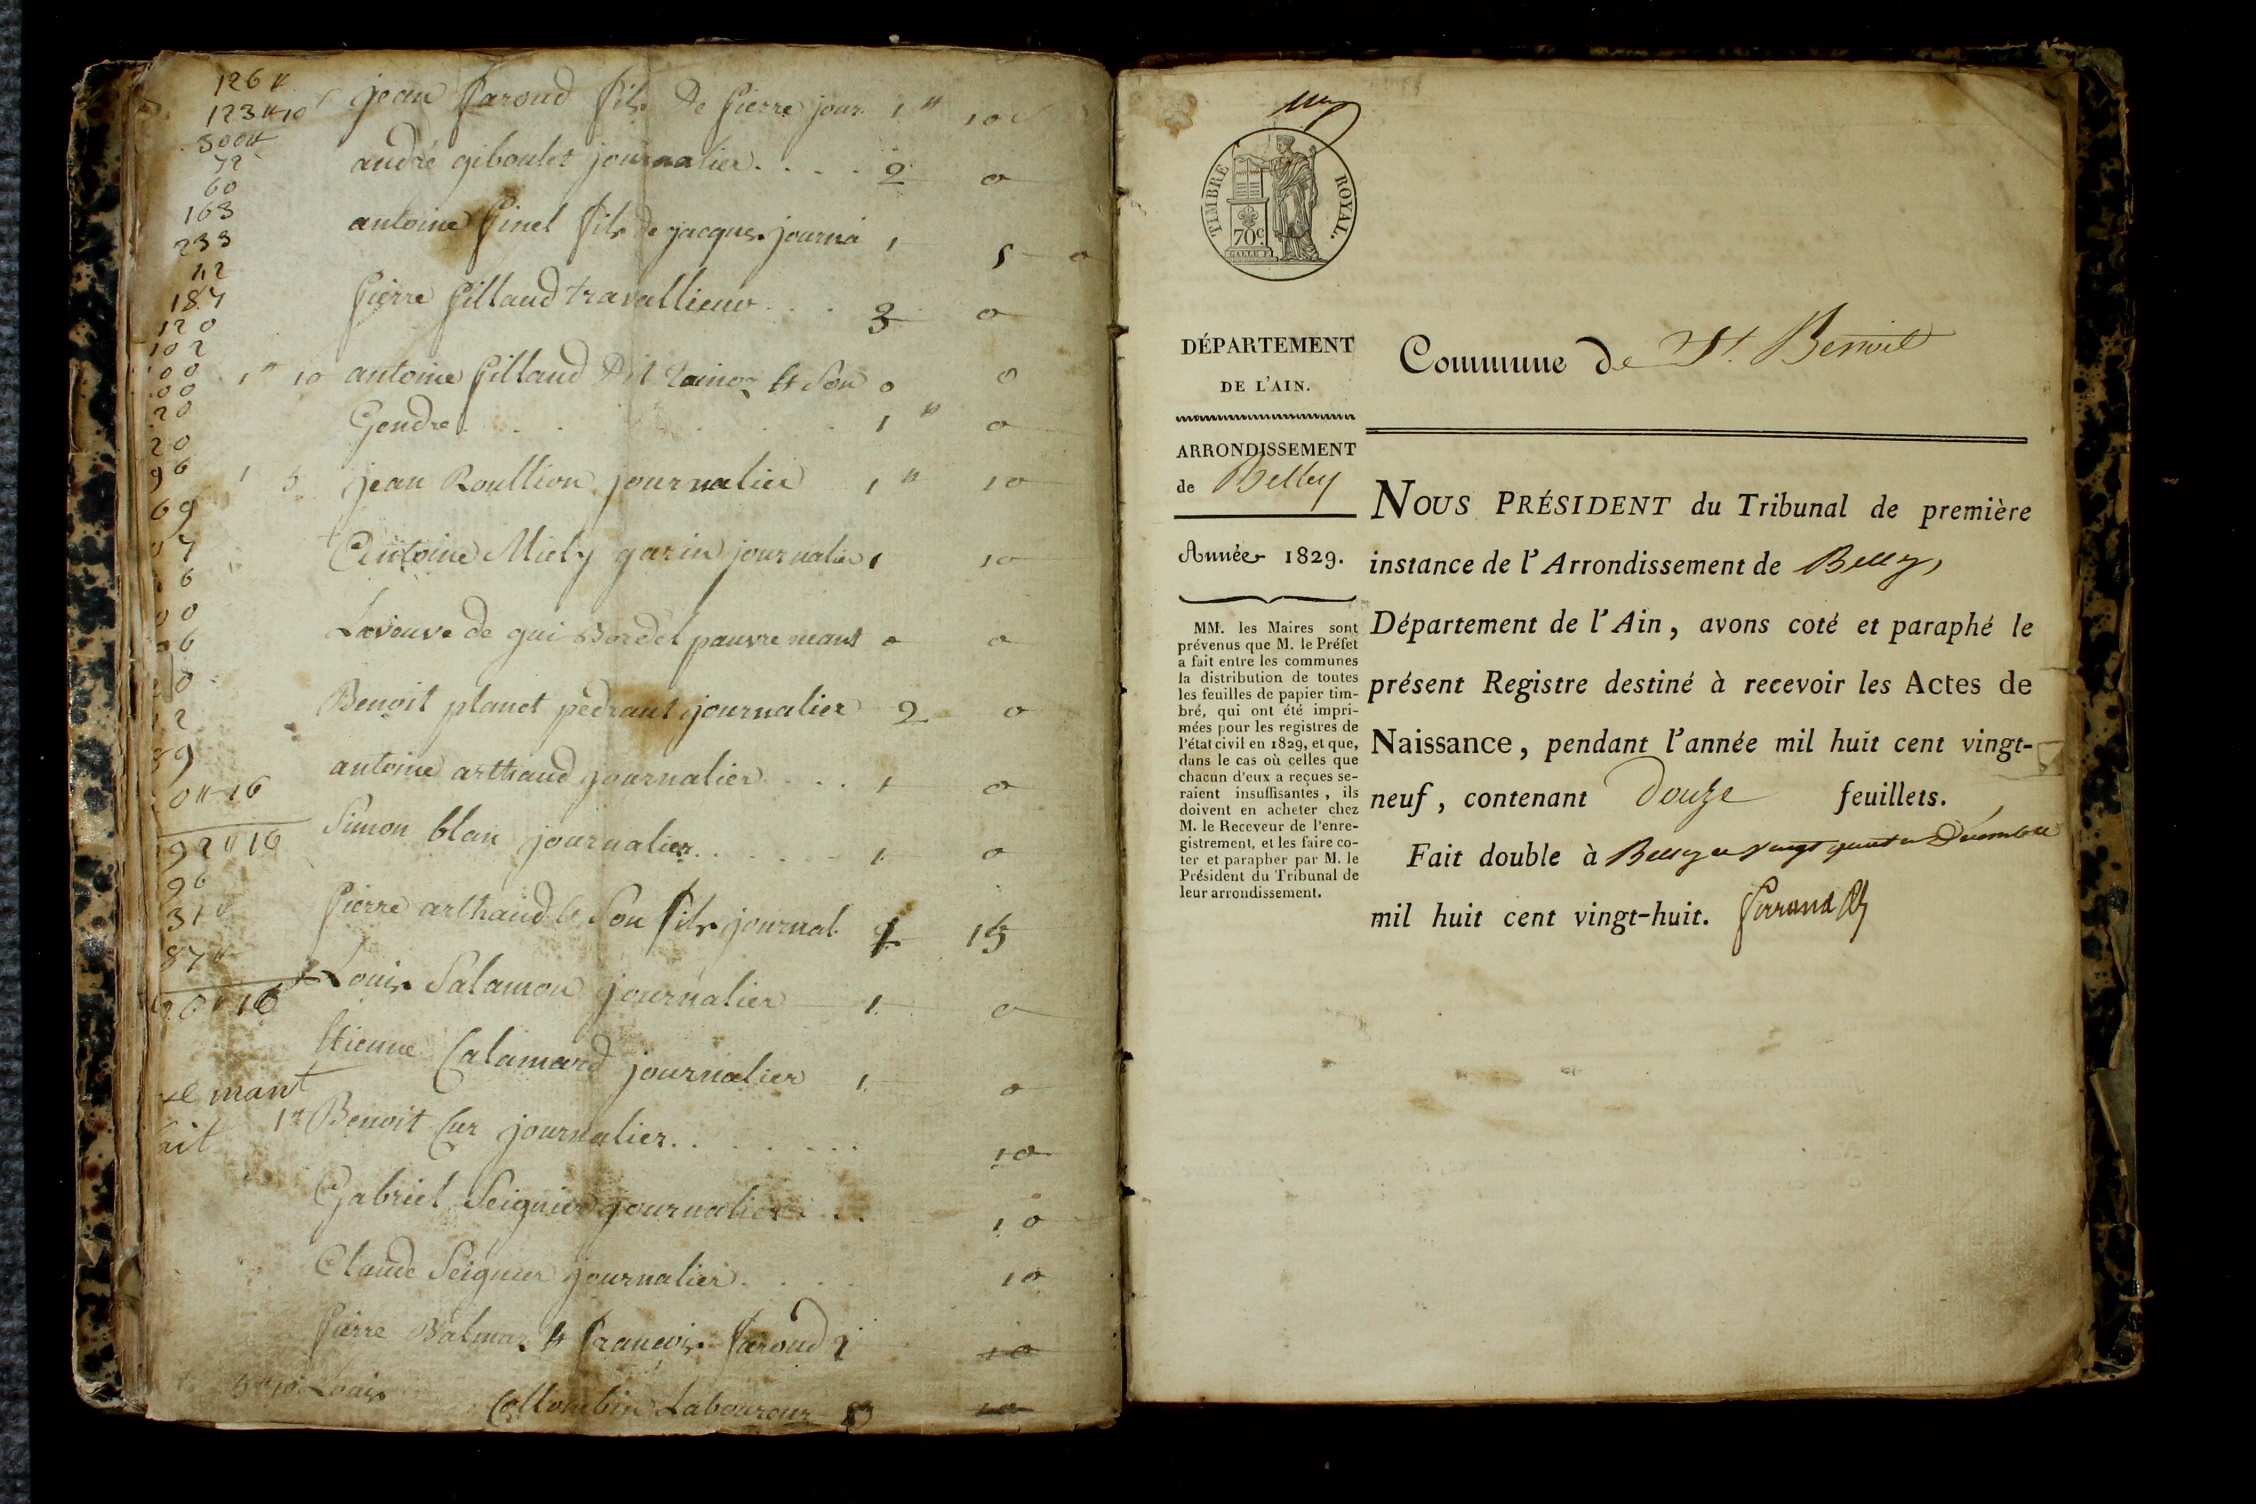 126 ₶
123 ₶ 10
300 ₶
72
60
163
233
42
187
120
102
00
00
20
20
96
69
0 ₶ 16
92 ₶ 16
96
31 ₶
87 ₶
20 ₶ 16
mant
ait
jean paroud fils de pierre jour. 1 ₶ 10 s
andré giboulet journalier . . . . 2 0
antoine pinel fils de jacques journa 1 5 0
pierre pillaud travallieur . . . 3 0
1 ₶ 10 antoine pillaud Dit et Son 0 0
Gendre . . . . . . 1 ₶ 0
1 5 jean Roullion journalier 1 ₶ 10
Antoine Miely garin journalier 1 10
La veuve de gui Bordel pauvre mant 0 0
Benoit planet pedrant journalier 2 0
antoine arthaud journalier . . . 1 0
Simon blan journalier . . . . . 1 0
pierre arthaud & Son fils journal. 1 15
Louis Salamon journalier 1 0
Etienne Calamard journalier 1 0
1 ₶ Benoit Cur journalier . . . . . 10
Gabriel Seignier journalier . . . 10
Claude Seignier journalier . . . . 10
pierre Balmaz & françois paroud 1 10
Louis Collombin Laboureur 3 10
TIMBRE ROYAL.
70 c.
DÉPARTEMENT
DE L'AIN.
ARRONDISSEMENT
de Belley
Année 1829.
MM. les Maires sont
prévenus que M. le Préfet
a fait entre les communes
la distribution de toutes
les feuilles de papier tim-
bré, qui ont été impri-
mées pour les registres de
l'état civil en 1829, et que,
dans le cas où celles que
chacun d'eux a reçues se-
raient insuffisantes, ils
doivent en acheter chez
M. le Receveur de l'enre-
gistrement, et les faire co-
ter et parapher par M. le
Président du Tribunal de
leur arrondissement.
Commune de St. Benoit
NOUS PRÉSIDENT du Tribunal de première
instance de l'Arrondissement de Belley,
Département de l'Ain, avons coté et paraphé le
présent Registre destiné à recevoir les Actes de
Naissance, pendant l'année mil huit cent vingt-
neuf, contenant Douze feuillets.
Fait double à Belley ce vingt Décembre
mil huit cent vingt-huit.